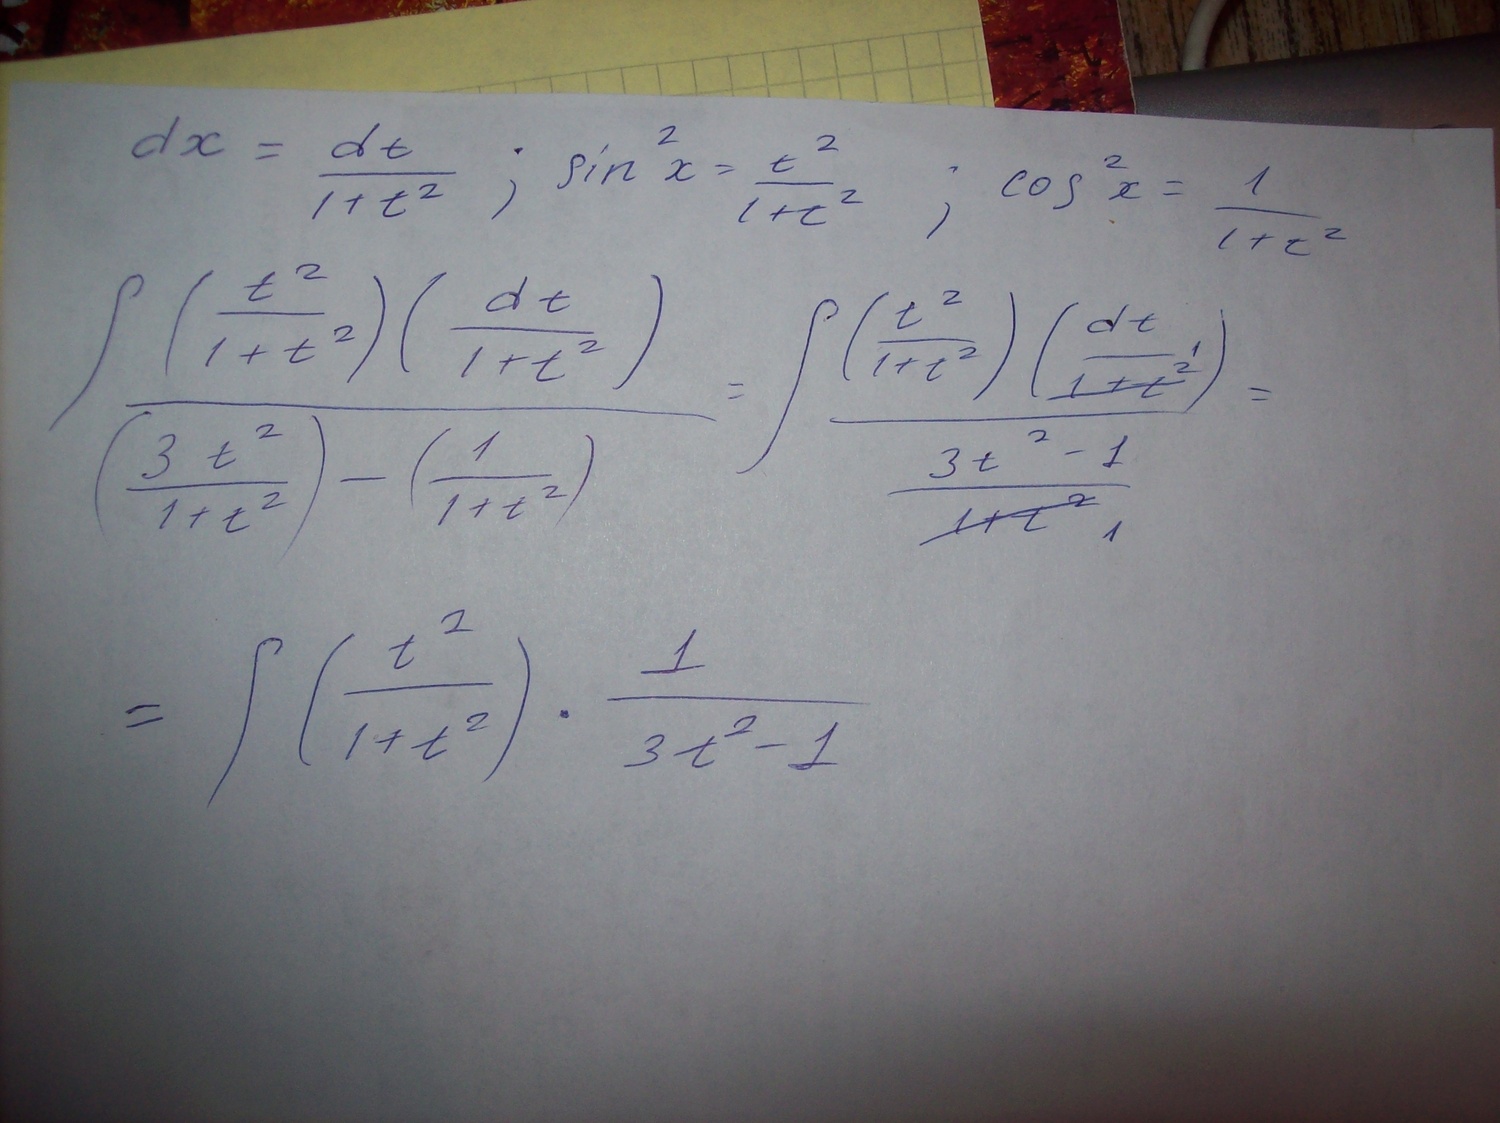 dx = dt/(1+t²) ; sin²x = t²/(1+t²) ; cos²x = 1/(1+t²)
∫ ((t²/(1+t²)) (dt/(1+t²))) / ((3t²/(1+t²)) − (1/(1+t²))) = ∫ ((t²/(1+t²)) (dt/(1+t²) 1)) / ((3t²−1)/(1+t²) 1) =
= ∫ (t²/(1+t²)) · 1/(3t²−1)